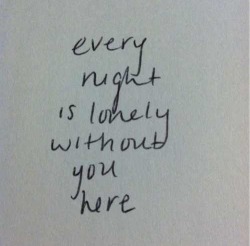 every
night
is lonely
without
you
here